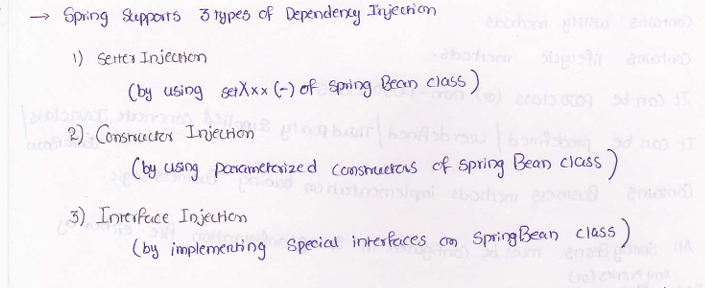 → Spring Supports 3 types of Dependency Injection
1) Setter Injection
(by using setXxx (-) of Spring Bean class)
2) Constructor Injection
(by using parameterized constructors of Spring Bean class)
3) Interface Injection
(by implementing Special interfaces on Spring Bean class)